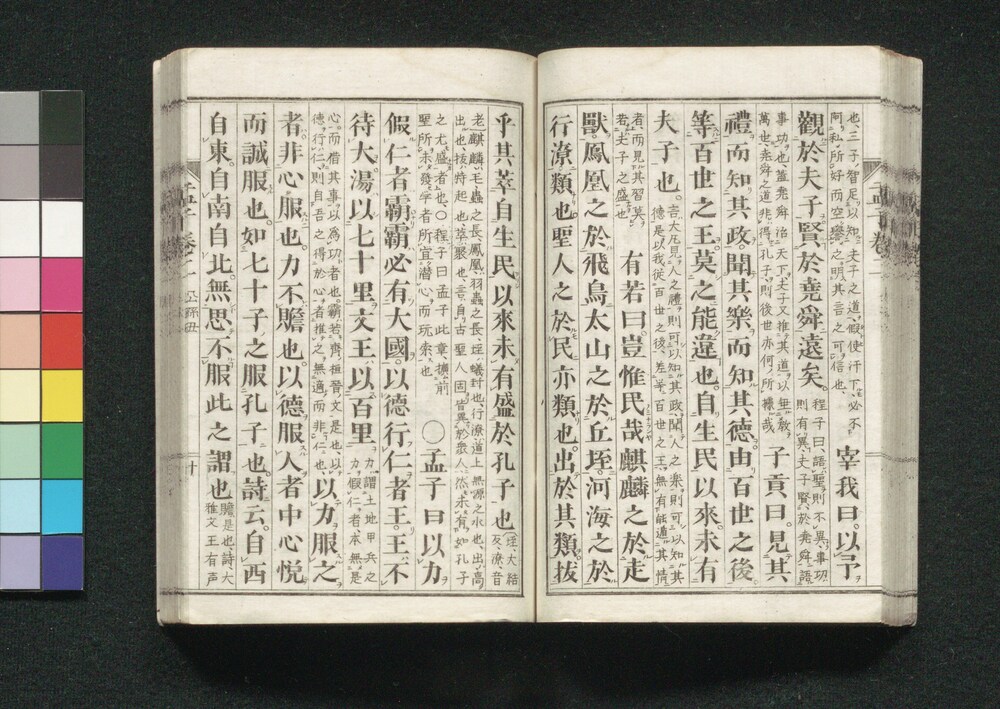 也三子智足以知夫子之道假使汙下必不
阿私所好而空譽之明其言之可信也
宰我曰。以予
觀於夫子賢於堯舜遠矣。
程子曰、語聖則不異、事功
則有異、夫子賢於堯舜、語
事功也、蓋堯舜治天下、夫子又推其道、以垂教
萬世、堯舜之道、非得孔子、則後世亦何所據哉
子貢曰。見其
禮而知其政。聞其樂而知其德。由百世之後。
等百世之王。莫之能違也。自生民以來。未有
夫子也。
言大凡見人之禮、則可以知其政、聞人之樂、則可以知其
德、是以我從百世之後、差等百世之王、無有能遁其情
者、而見其皆莫
若夫子之盛也
有若曰。豈惟民哉。麒麟之於走
獸。鳳凰之於飛鳥。太山之於丘垤。河海之於
行潦。類也。聖人之於民。亦類也。出於其類。拔
乎其萃。自生民以來。未有盛於孔子也
垤、大結
反、潦、音
老、麒麟、毛蟲之長、鳳凰、羽蟲之長、垤、蟻封也、行潦、道上無源之水也、出、高
出也、拔、特起也、萃、聚也、言自古聖人、固皆異於衆人、然未有如孔子
之尤盛者也、○程子曰、孟子此章、擴前
聖所未發、學者所宜潛心而玩索也
○孟子曰。以力
假仁者霸。霸必有大國。以德行仁者王。王不
待大。湯以七十里。文王以百里
力、謂土地甲兵之
力、假仁者、本無是
心、而借其事、以爲功者也、霸、若齊桓晉文是也、以
德行仁、則自吾之得於心者推之、無適而非仁也
以力服人
者非心服也。力不贍也。以德服人者中心悅
而誠服也。如七十子之服孔子也。詩云。自西
自東。自南自北。無思不服。此之謂也
贍、足也、詩、大
雅、文王有声
孟子卷二
公孫丑
十